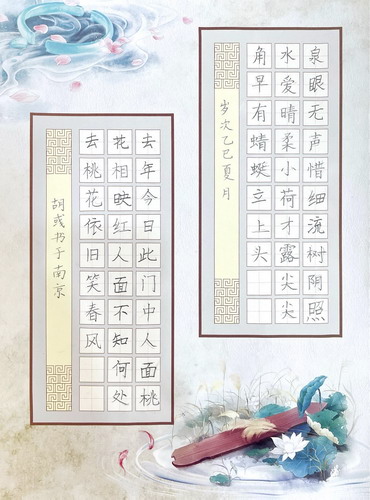 泉眼无声惜细流树阴照
水爱晴柔小荷才露尖尖
角早有蜻蜓立上头
岁次乙巳夏月
去年今日此门中人面桃
花相映红人面不知何处
去桃花依旧笑春风
胡或书于南京